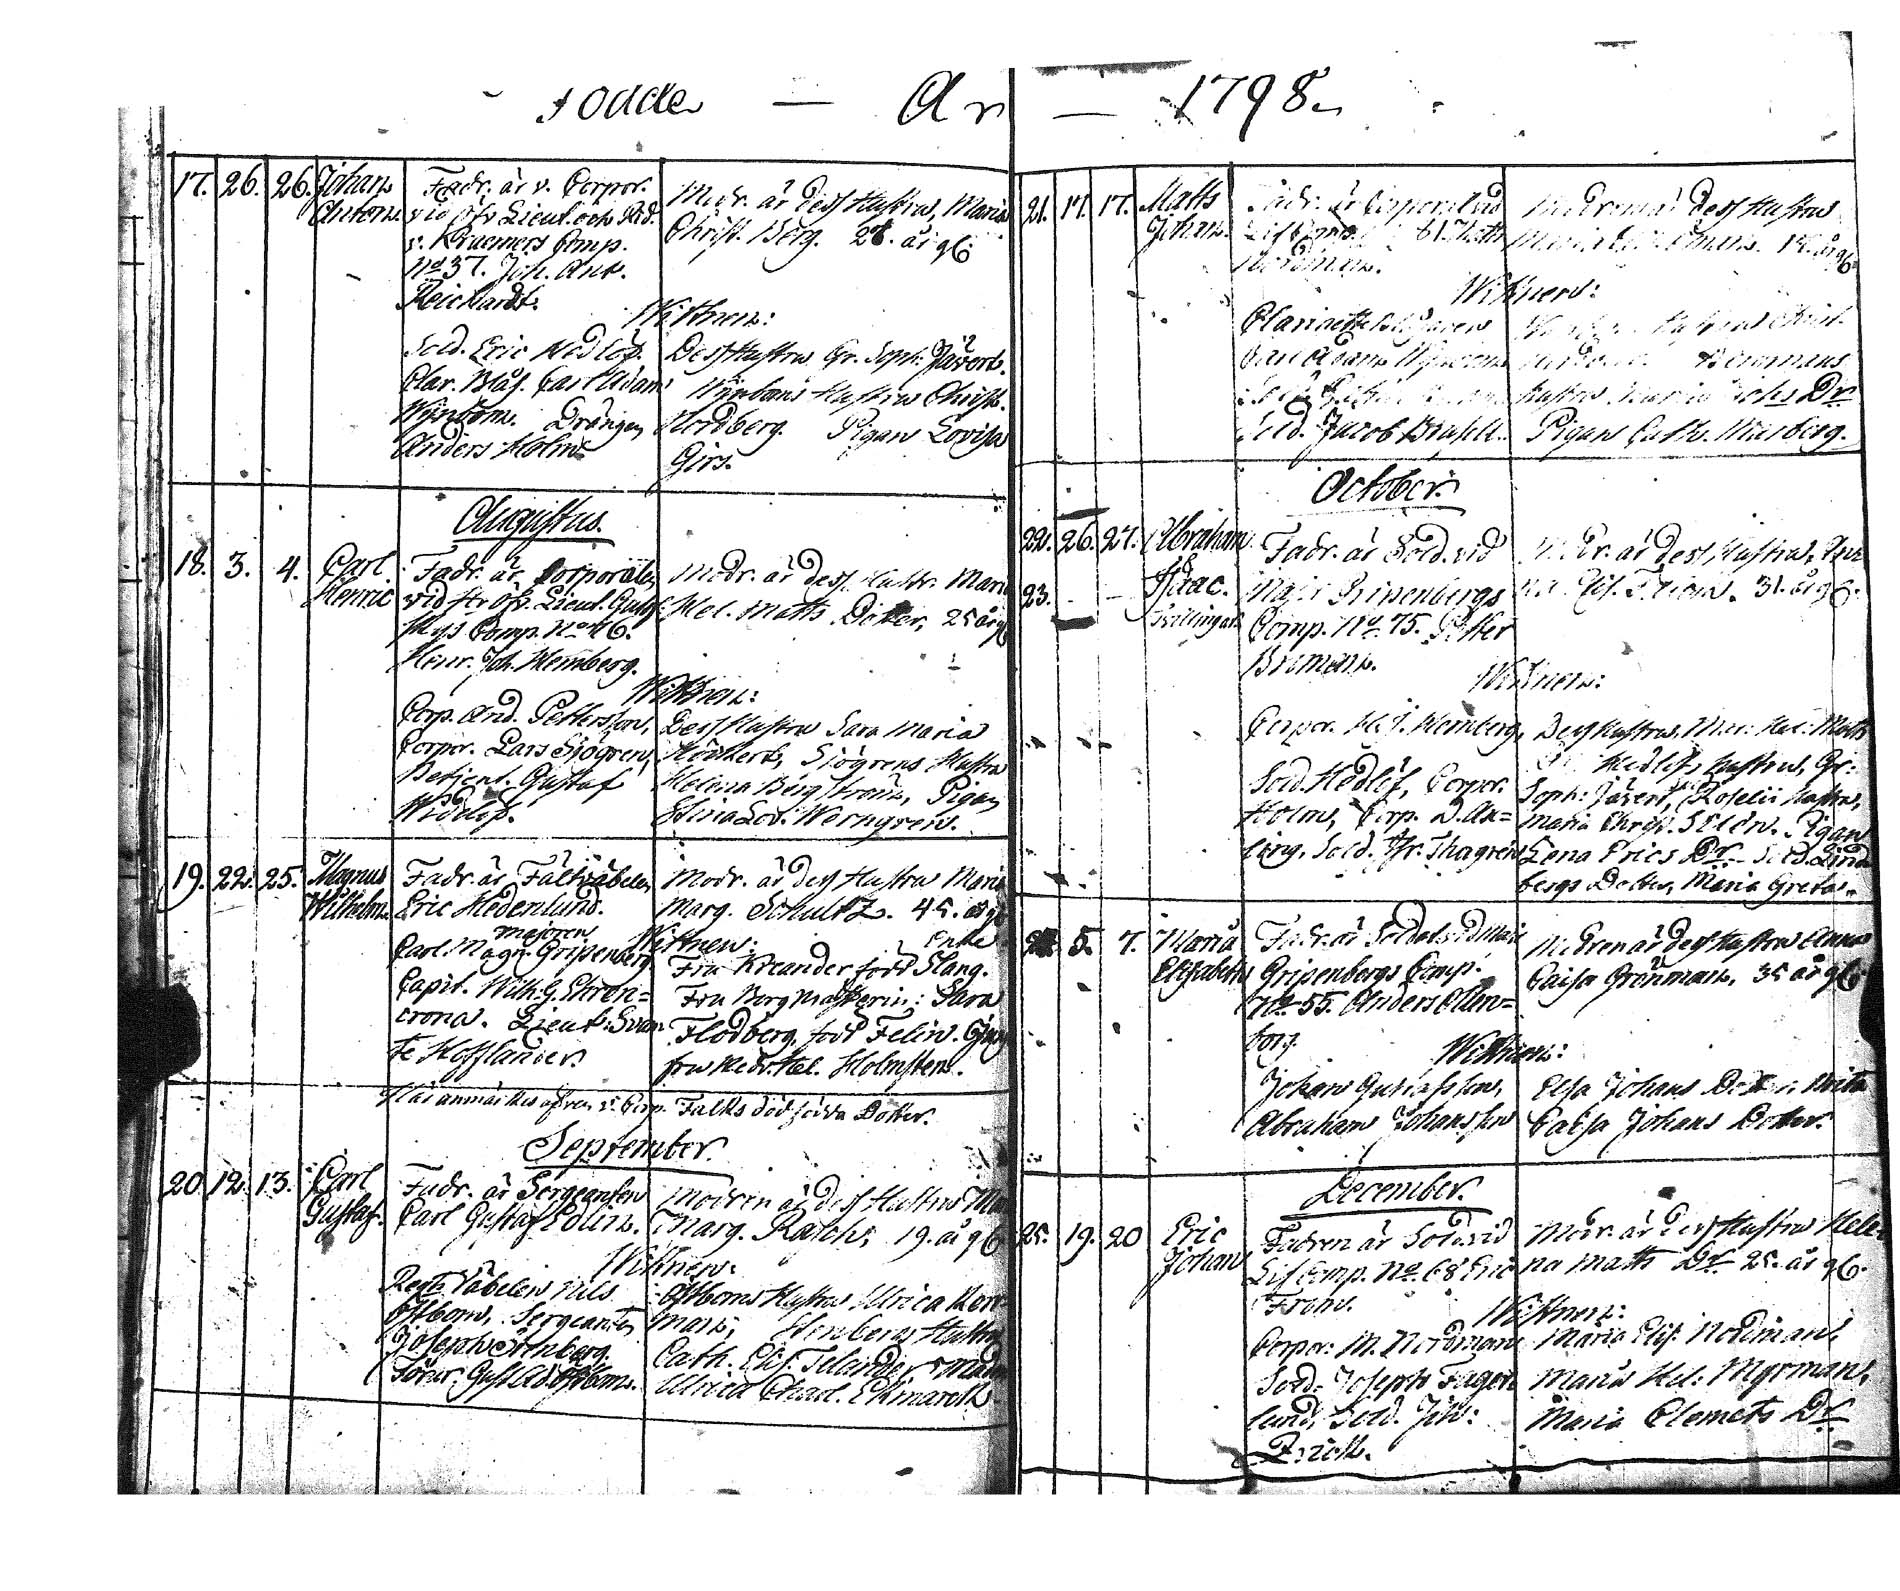 Födde — År — 1798.
17. 26. 26. Johan Anton.
Fadr. är v. Corpor.
vid Öfv. Lieut. och Rid.
v. Kraemers Comp.
No 37. Joh. Ant.
Reichardt.
Modr. är dess Hustru, Maria
Christ. Berg. 28. år g6.
Wittnen:
Sold. Eric Hedlöf.
Clar. Blås. Carl Adam
Wijnbom. Drängen
Anders Holm.
Dess Hustru Gr. Soph. Jävert.
Wijnboms Hustru Christ.
Nordberg. Pigan Lovisa
Girs.
Augustus.
18. 3. 4. Carl Henric
Fadr. är Corporalen
vid Hr Öfv. Lieut. Gust.
Comp. No 46.
Henr. Joh. Wernberg.
Modr. är dess Hustr. Maria
Hel. Matts Dotter, 25 år g6
Wittnen:
Corp. And. Pettersson,
Corpor. Lars Siögren,
Betjent. Gustaf
Widlöf.
Dess Hustru Sara Maria
Siögrens Hustru
Helena Bergström, Pigan
Stina Lov. Werngren.
19. 22. 25. Magnus Wilhelm.
Fadr. är Fältväbelen
Eric Hedenlund.
Modr. är dess Hustru Maria
Marg. Schultz. 45. år g6
Wittnen:
majoren
Carl Magn. Gripenberg
Capit. Wilh. G. Ehren=
crona. Lieut. Svan
te Hofflander.
Enke
Fru Kreander född Slang.
Fru Bergmästerin: Sara
Flodberg, född Felin. Jung
fru Hedv. Hel. Holmsten.
Här anmärkes äfven v. Corp. Falks död födda Dotter.
September.
20. 12. 13. Carl Gustaf.
Fadr. är Sergeanten
Carl Gustaf Edlin.
Modren är dess Hustru Ma
Marg. Rasch, 19. år g6
Wittnen:
Regts Väbelen Nils
Östbom, Sergeanten
Joseph Stenberg.
Förar. Gust. Ad. Östbom.
Östboms Hustru Ulrica
Stenbergs Hustru
Cath. Elis. Telander
Ulrica Charl. Ekmaroth.
21. 17. 17. Matts Johan.
Fadr. är Corporal vid
Lif Comp. 61. Matts
Nordman.
Modren är dess Hustru
Maria 18. år g6.
Wittnen:
Clarinettblåsaren
Carl Adam Wijnbom
Sold. Jacob
Hustru Christ.
Hustru Maria Dr
Pigan Cath. Miasberg.
October.
22. 26. 27. Abraham
23. — — Isaac.
Tvillingar
Fadr. är Sold. vid
Major Gripenbergs
Comp. No 75. Petter
Broman.
Modr. är dess Hustru, An
na Elis. 31. år g6.
Wittnen:
Corpor. H. J. Wernberg,
Sold. Hedlöf, Corpor.
Holm, Corp. D. Ax=
ling, Sold. Fr. Thagren
Dess Hustru, Mar. Hel. Matts
Dr Hedlöfs Hustru, Gr.
Soph. Jävert, Roselii Hustru,
Maria Christ. Pigan
Lena Erics Dr Sold. Lind
bergs Dotter, Maria Greta.
24. 5. 7. Maria Elisabeth
Fadr. är Soldat vid Major
Gripenbergs Comp.
No 55. Anders Allen=
borg.
Modren är dess Hustru Anna
Caisa Grönman, 35 år g6
Wittnen:
Johan Gustafsson,
Abraham Johansson
Elsa Johans Dotter,
Caisa Johans Dotter.
December.
25. 19. 20 Eric Johan
Fadren är Sold. vid
Lif Comp. No 68 Eric
From.
Modr. är dess Hustru Hele
na Matts Dr 25. år g6.
Wittnen:
Corpor. M. Nordman
Sold. Joseph Fager
lund, Sold. Joh:
Maria Elis. Nordman,
Maria Hel. Myrman,
Maria Clemets Dr